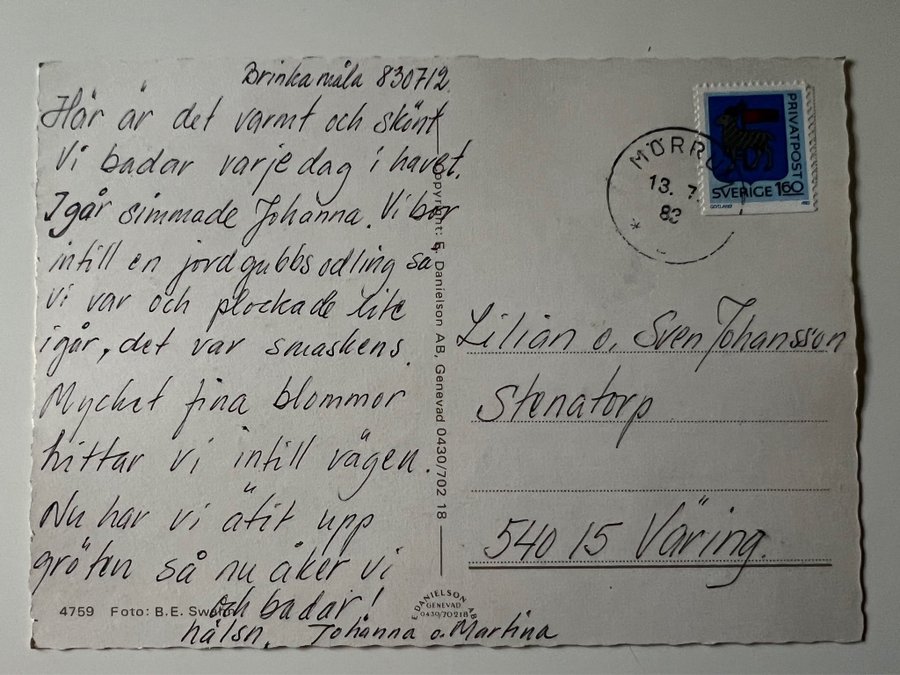 Brinkamåla 830712
Här är det varmt och skönt
Vi badar varje dag i havet.
Igår simmade Johanna. Vi bor
intill en jordgubbsodling så
vi var och plockade lite
igår, det var smaskens.
Mycket fina blommor
hittar vi intill vägen.
Nu har vi ätit upp
gröten så nu åker vi
och badar!
hälsn. Johanna o. Martina
4759 Foto: B.E.
Copyright: E. Danielson AB, Genevad 0430/702 18
E. DANIELSON AB
GENEVAD
0430/70218
PRIVATPOST
SVERIGE 160
GOTLAND
13. 7.
83
Lilian o. Sven Johansson
Stenatorp
540 15 Väring.